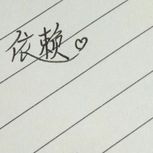 依赖♡